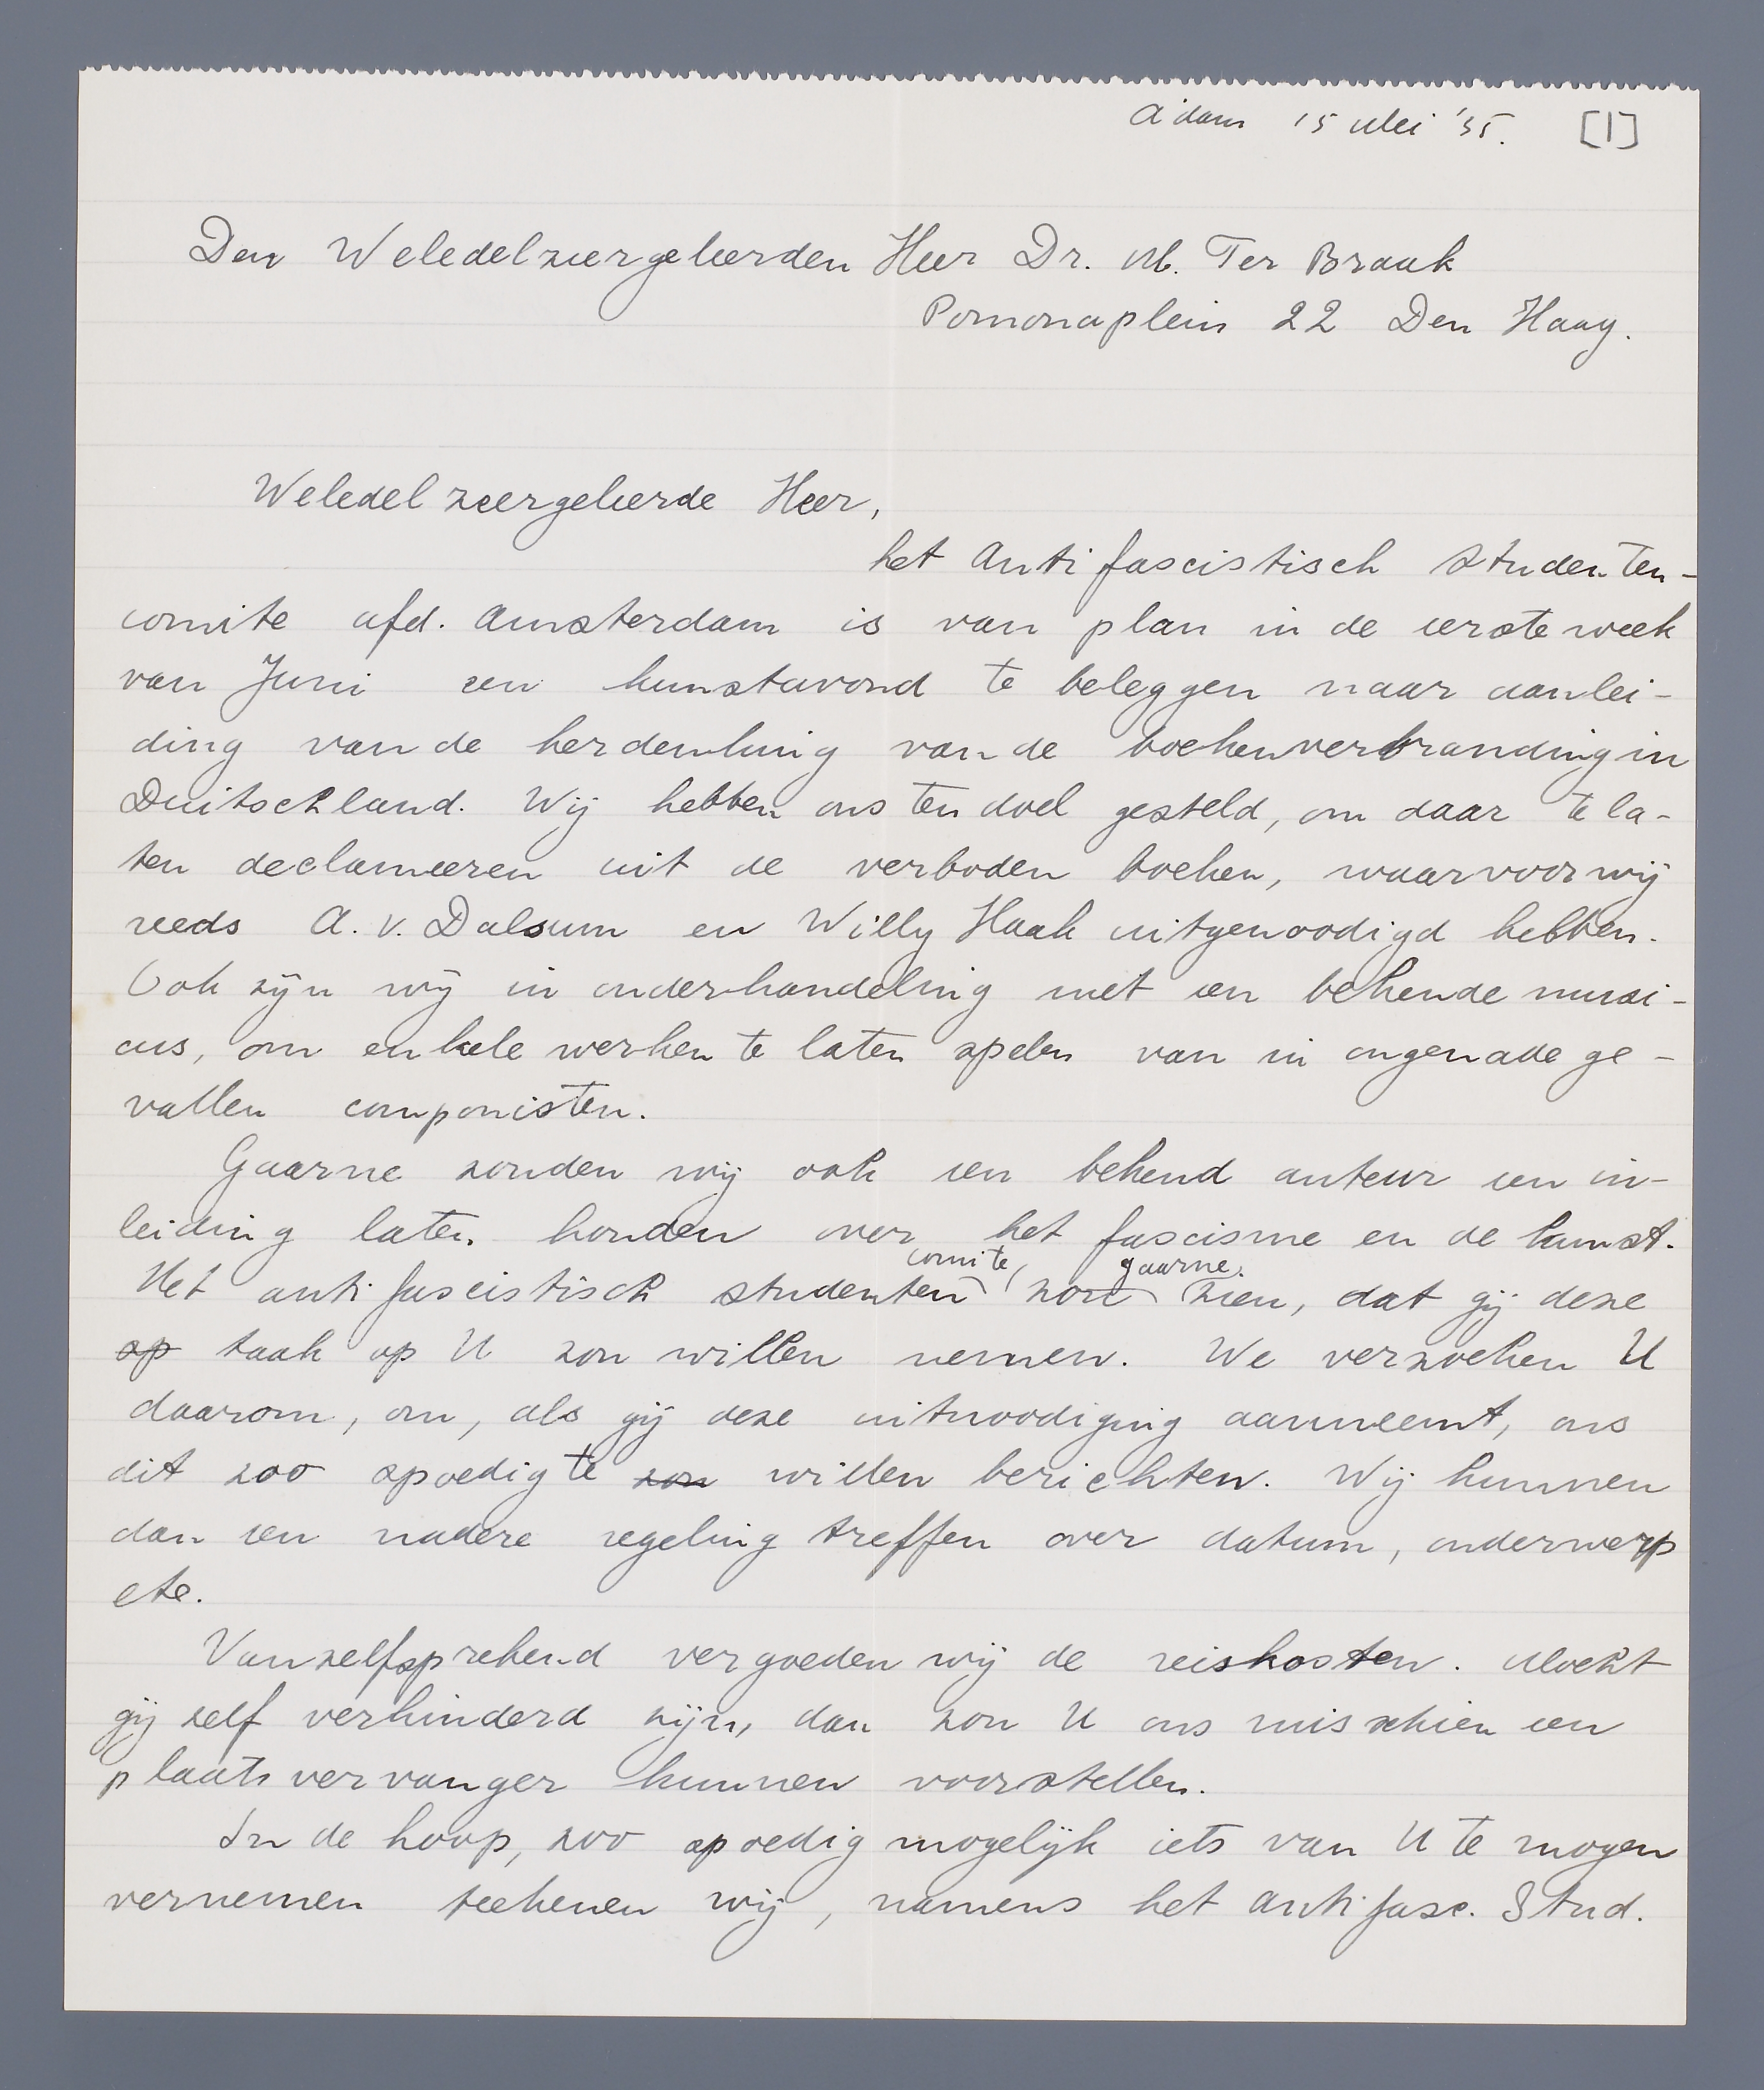 A'dam 15 Mei '35. [1]
Den Weledelzeergeleerden Heer Dr. M. Ter Braak
Pomonaplein 22 Den Haag.
Weledelzeergeleerde Heer,
het Antifascistisch Studenten-
comite afd. Amsterdam is van plan in de eerste week
van Juni een kunstavond te beleggen naar aanlei-
ding van de herdenking van de boekenverbranding in
Duitschland. Wij hebben ons ten doel gesteld, om daar te la-
ten declameeren uit de verboden boeken, waarvoor wij
reeds A. v. Dalsum en Willy Haak uitgenoodigd hebben.
Ook zijn wij in onderhandeling met een bekende musi-
cus, om enkele werken te laten spelen van in ongenade ge-
vallen componisten.
Gaarne zouden wij ook een bekend auteur een in-
leiding laten houden over het fascisme en de kunst.
comite gaarne
Het antifascistisch studenten zou zien, dat gij deze
op taak op U zou willen nemen. We verzoeken U
daarom, om, als gij deze uitnoodiging aanneemt, ons
dit zoo spoedig te zou willen berichten. Wij kunnen
dan een nadere regeling treffen over datum, onderwerp
etc.
Vanzelfsprekend vergoeden wij de reiskosten. Mocht
gij zelf verhinderd zijn, dan zou U ons misschien een
plaatsvervanger kunnen voorstellen.
In de hoop, zoo spoedig mogelijk iets van U te mogen
vernemen teekenen wij, namens het antifasc. Stud.